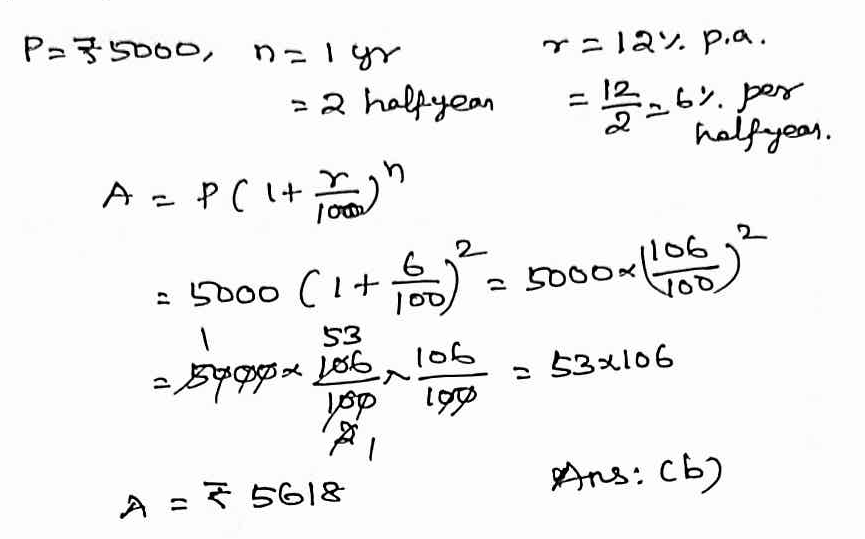 P = ₹ 5000, n = 1 yr r = 12% p.a.
= 2 halfyear = 12/2 = 6% per halfyear.
A = P ( 1 + r/100 )^n
= 5000 ( 1 + 6/100 )^2 = 5000 × ( 106/100 )^2
1 53
= 5000 × 106/100 × 106/100 = 53 × 106
2 1
A = ₹ 5618 Ans: (b)